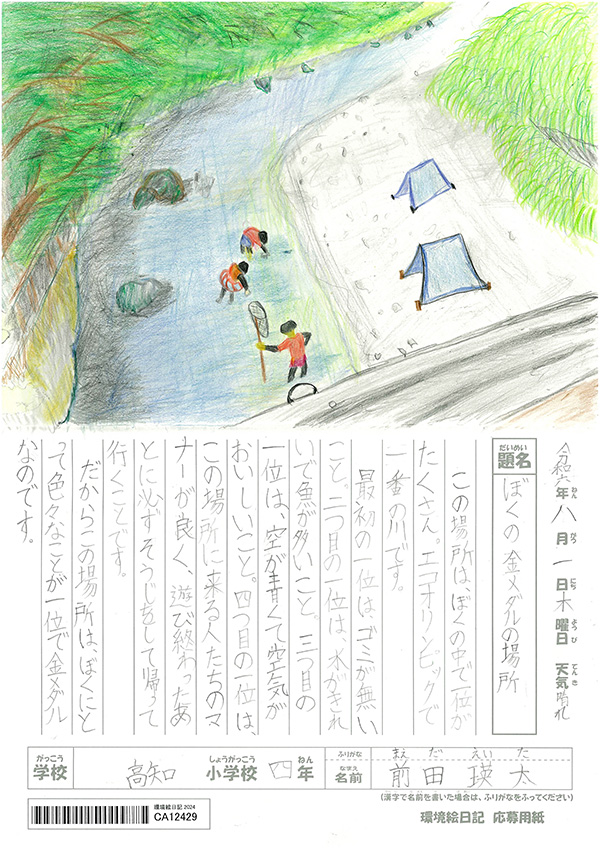 令和六年八月一日木曜日 天気晴れ
題名 ぼくの金メダルの場所
この場所は、ぼくの中で一位が
たくさん。エコオリンピックで
一番の川です。
最初の一位は、ゴミが無い
こと。二つ目の一位は、水がきれ
いで魚が多いこと。三つ目の
一位は、空が青くて空気が
おいしいこと。四つ目の一位は、
この場所に来る人たちのマ
ナーが良く、遊び終わったあ
とに必ずそうじをして帰って
行くことです。
だからこの場所は、ぼくにと
って色々なことが一位で金メダル
なのです。
がっこう しょうがっこう ねん ふりがな まえ だ えい た
学校 高知 小学校 四年 名前 前田 瑛太
(漢字で名前を書いた場合は、ふりがなをふってください)
環境絵日記 2024
CA12429
環境絵日記 応募用紙